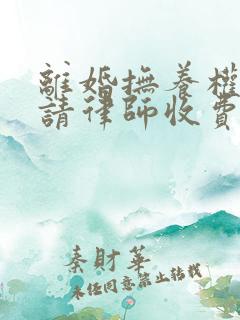 離婚撫養權
請律師收費
秦財華
未任同意禁止转载